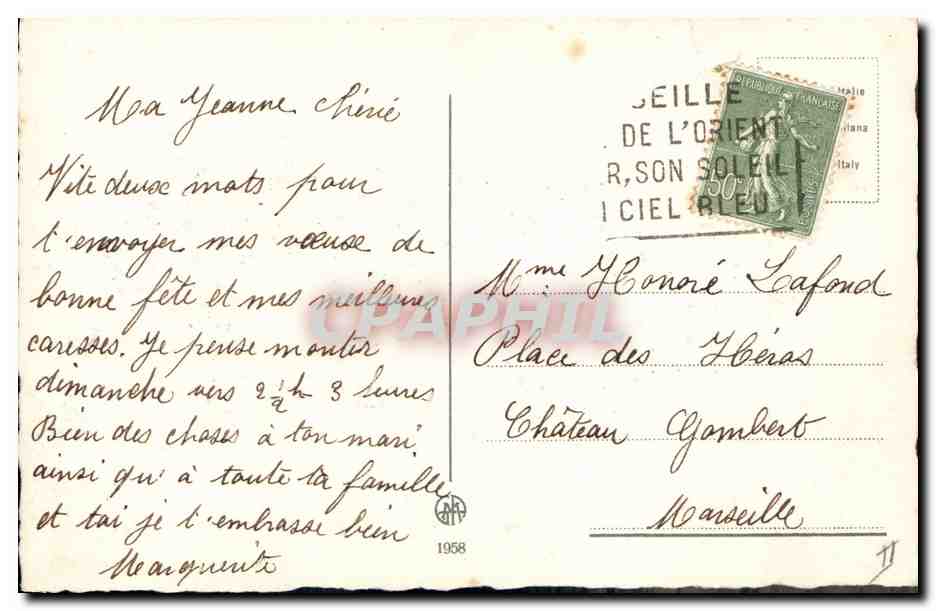 Ma Jeanne chérie
Vite deux mots pour
t'envoyer mes vœux de
bonne fête et mes meilleures
caresses. Je pense monter
dimanche vers 2 1/2 h 3 heures
Bien des choses à ton mari
ainsi qu'à toute ta famille
et toi je t'embrasse bien
Marguerite
SEILLE
DE L'ORIENT
R, SON SOLEIL
CIEL BLEU
REPUBLIQUE FRANÇAISE
50c
Italy
Mme: Honoré Lafond
Place des Héros
Château Gombert
Marseille
1958
CPAPHIL